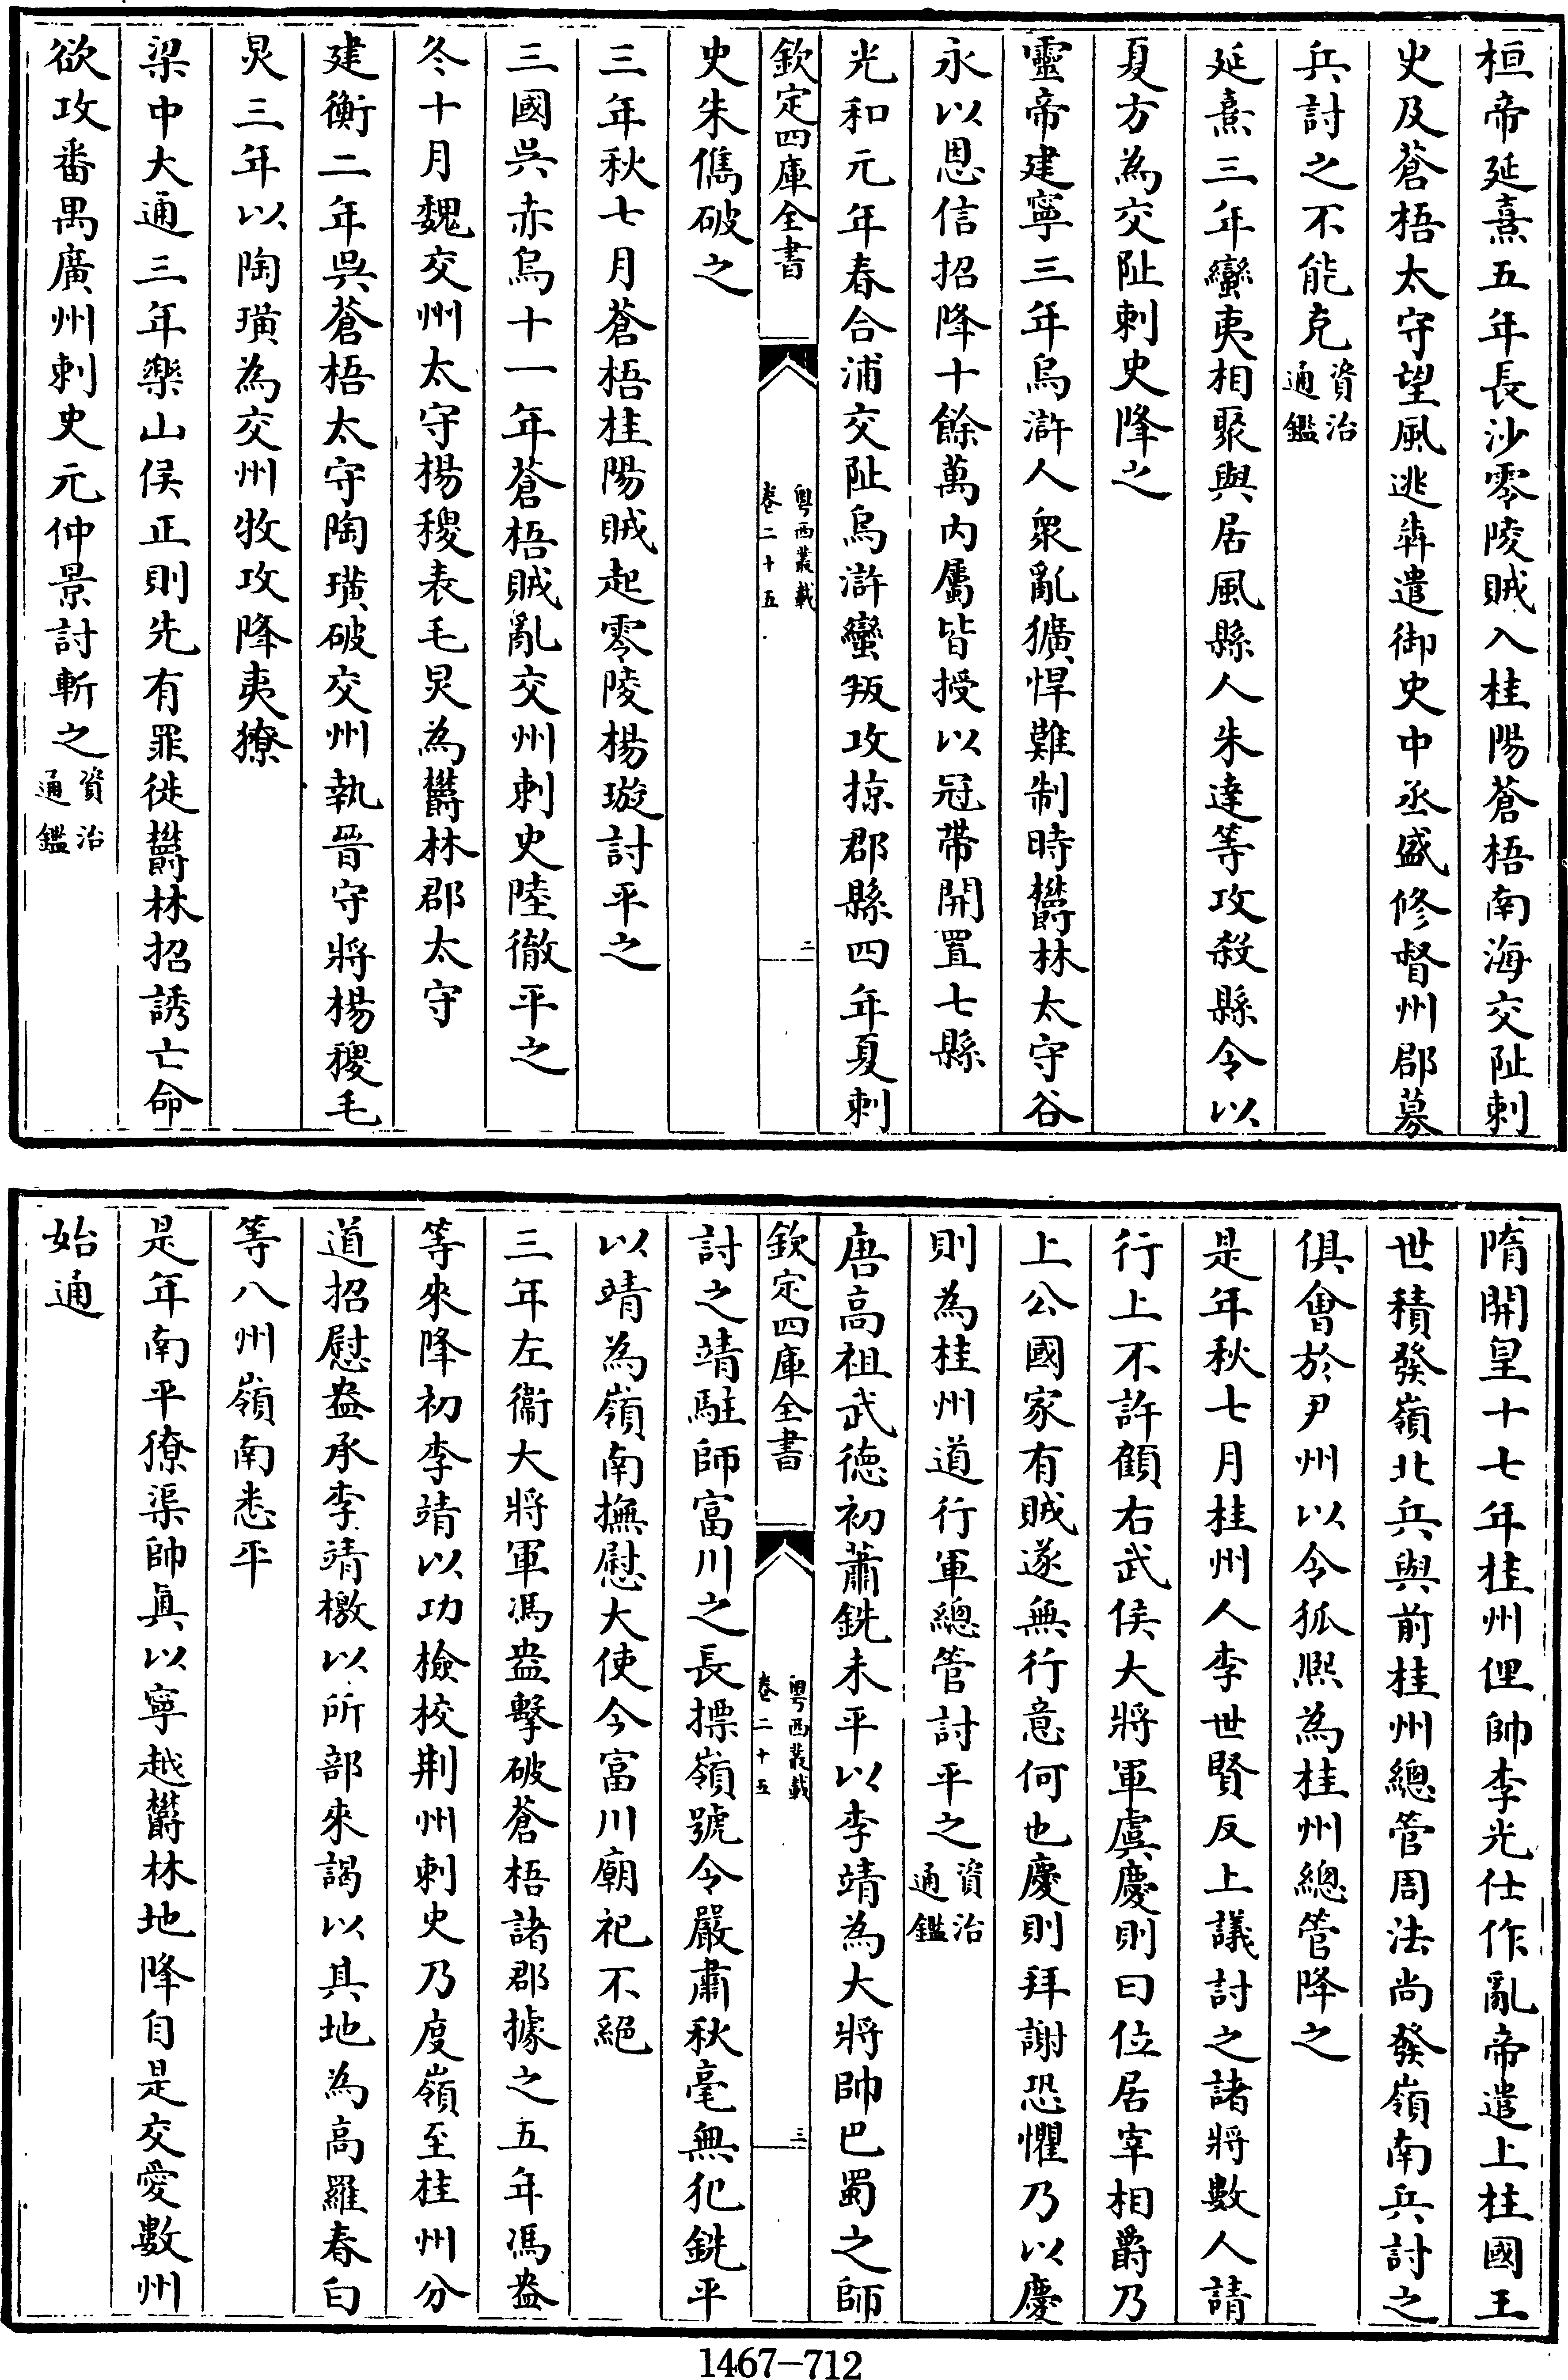 桓帝延熹五年長沙零陵賊入桂陽蒼梧南海交阯刺
史及蒼梧太守望風逃犇遣御史中丞盛修督州郡募
兵討之不能克資治通鑑
延熹三年蠻夷相聚與居風縣人朱達等攻殺縣令以
夏方為交阯刺史降之
靈帝建寧三年烏滸人衆亂獷悍難制時欎林太守谷
永以恩信招降十餘萬内屬皆授以冠帶開置七縣
光和元年春合浦交阯烏滸蠻叛攻掠郡縣四年夏刺
欽定四庫全書
粤西叢載
卷二十五
二
史朱儁破之
三年秋七月蒼梧桂陽賊起零陵楊璇討平之
三國吳赤烏十一年蒼梧賊亂交州刺史陸徹平之
冬十月魏交州太守楊稷表毛炅為欝林郡太守
建衡二年吳蒼梧太守陶璜破交州執晉守將楊稷毛
炅三年以陶璜為交州牧攻降夷獠
梁中大通三年樂山侯正則先有罪徙欝林招誘亡命
欲攻番禺廣州刺史元仲景討斬之資治通鑑
隋開皇十七年桂州俚帥李光仕作亂帝遣上柱國王
世積發嶺北兵與前桂州總管周法尚發嶺南兵討之
俱會於尹州以令狐熙為桂州總管降之
是年秋七月桂州人李世賢反上議討之諸將數人請
行上不許顧右武侯大將軍虞慶則曰位居宰相爵乃
上公國家有賊遂無行意何也慶則拜謝恐懼乃以慶
則為桂州道行軍總管討平之資治通鑑
唐高祖武德初蕭銑未平以李靖為大將帥巴蜀之師
欽定四庫全書
粤西叢載
卷二十五
三
討之靖駐師富川之長摽嶺號令嚴肅秋毫無犯銑平
以靖為嶺南撫慰大使今富川廟祀不絕
三年左衞大將軍馮盎擊破蒼梧諸郡據之五年馮盎
等來降初李靖以功檢校荆州刺史乃度嶺至桂州分
道招慰盎承李靖檄以所部來謁以其地為高羅春白
等八州嶺南悉平
是年南平獠渠帥眞以寧越欝林地降自是交愛數州
始通
1467-712